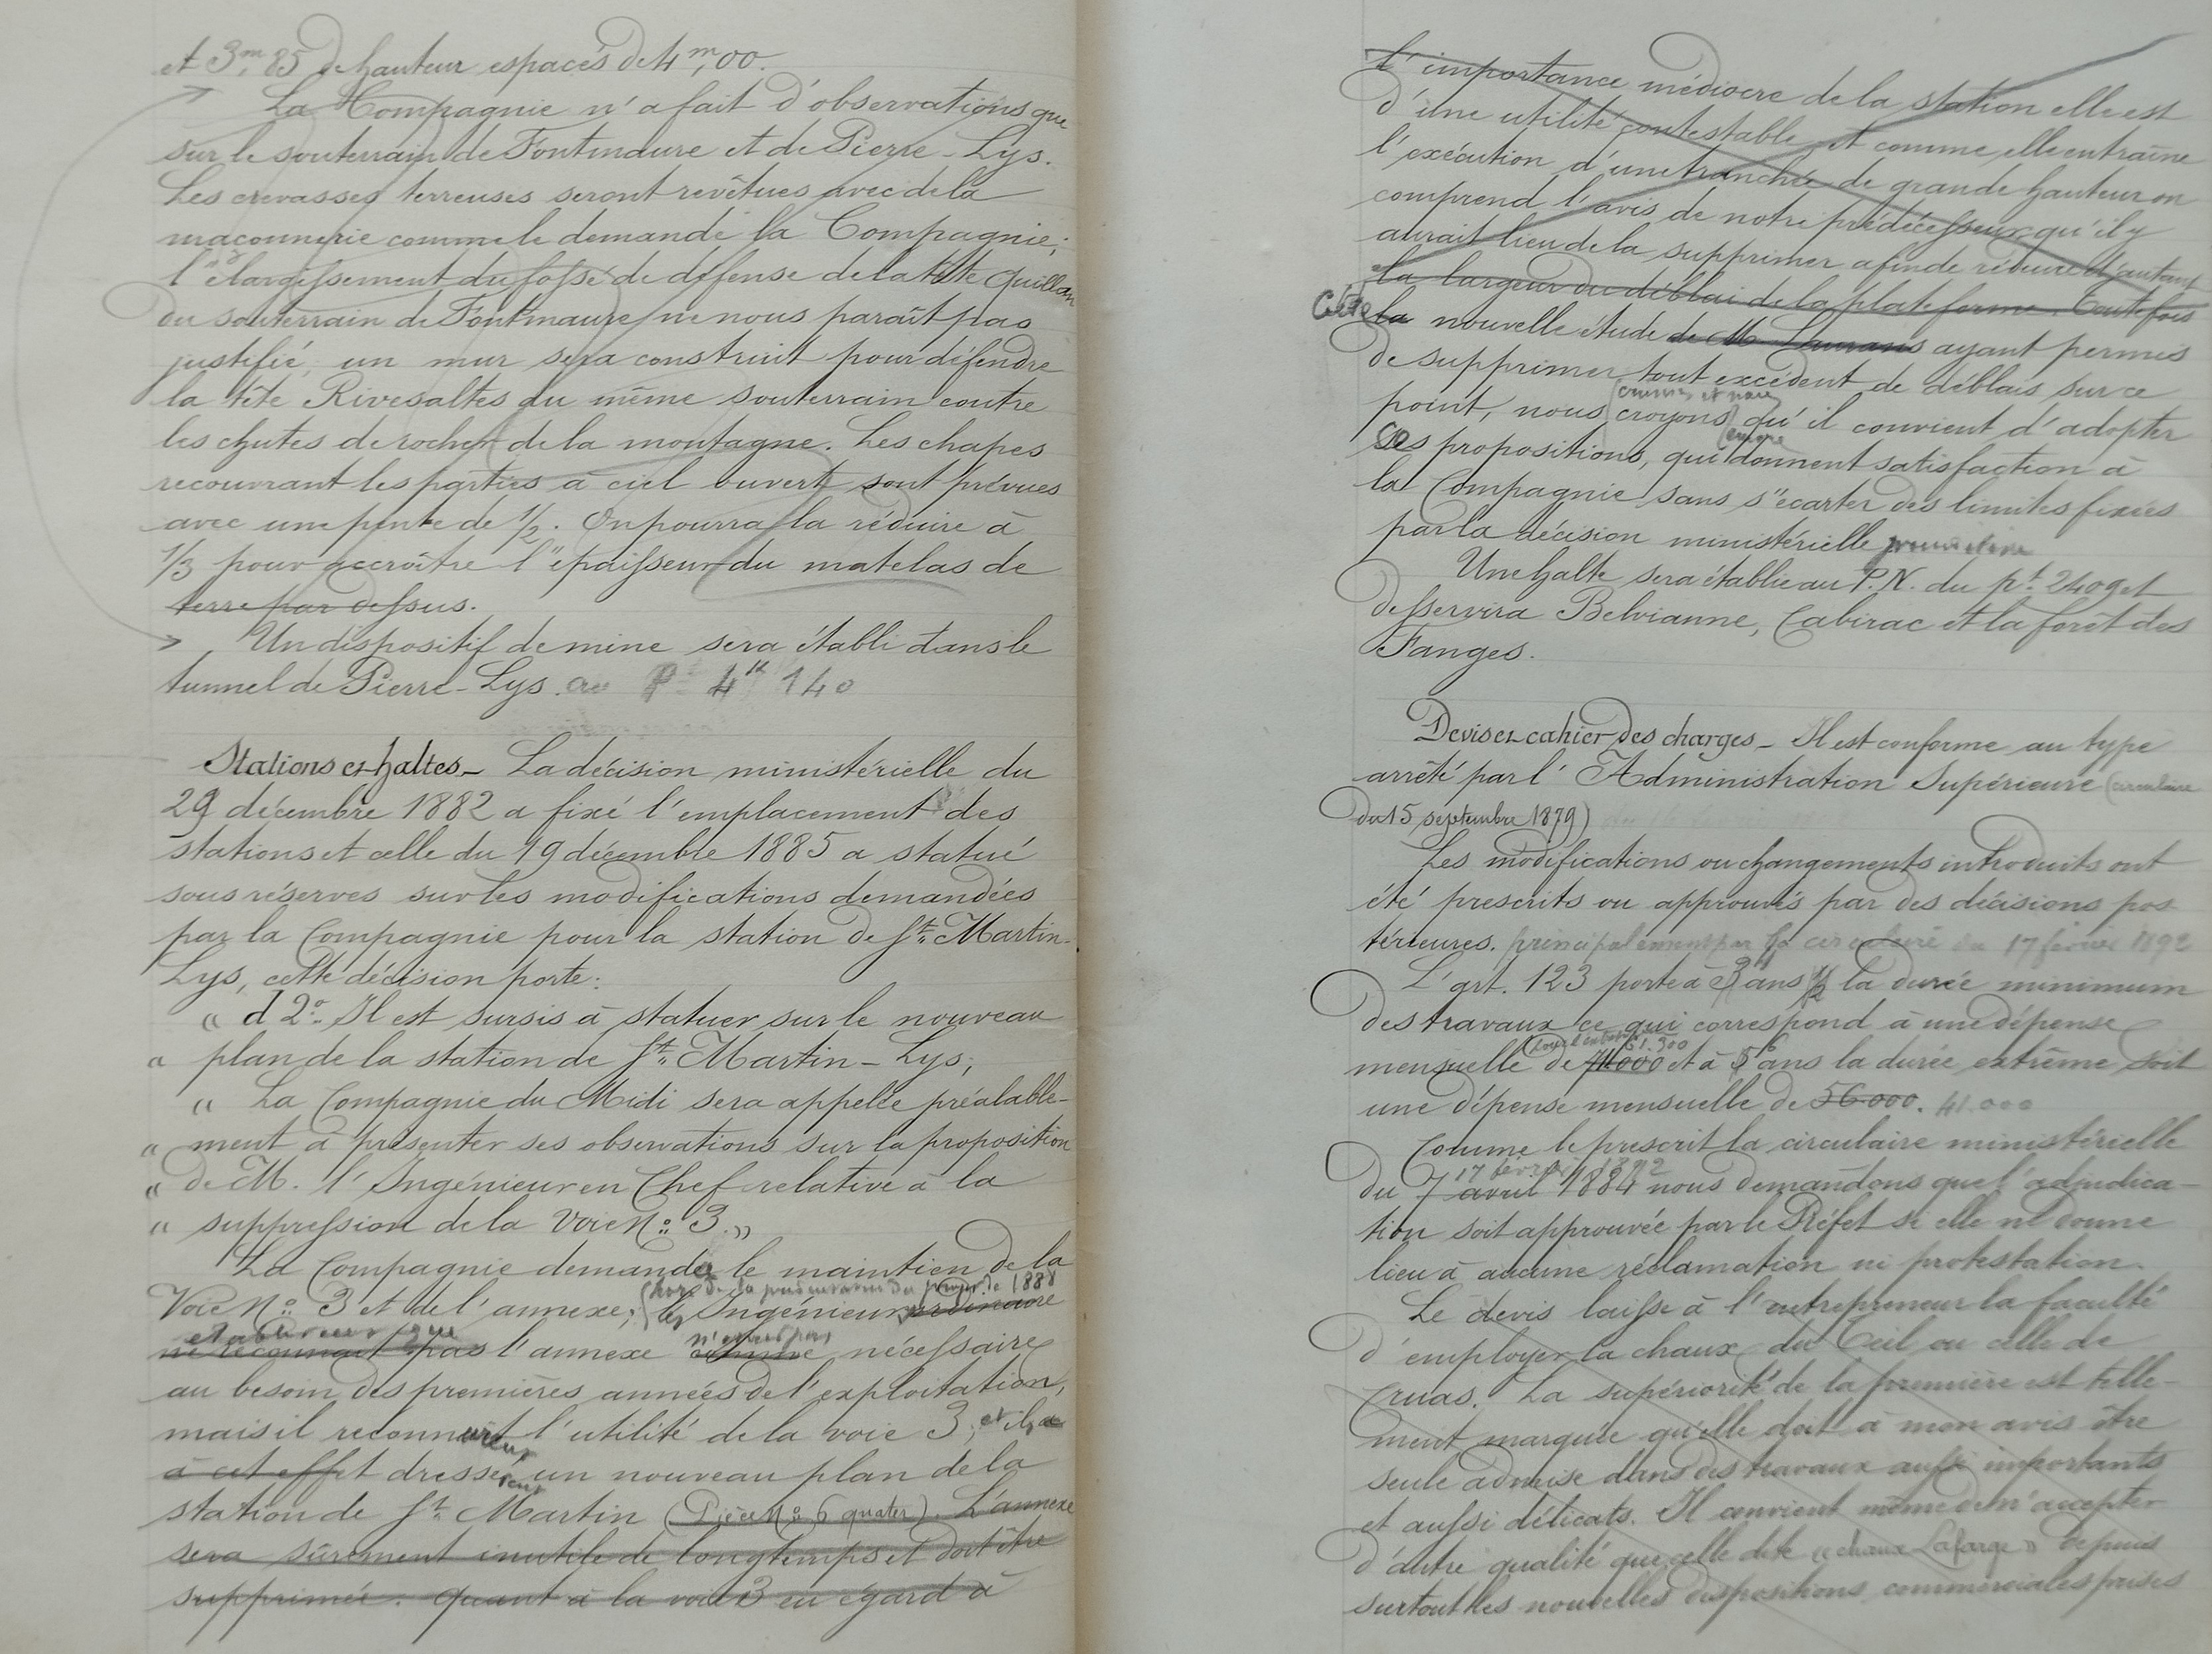 et 3m,85 de hauteur espacés de 4m,00.
La Compagnie n'a fait d'observations que
sur le souterrain de Fontmaure et de Pierre-Lys.
Les crevasses terreuses seront revêtues avec de la
maçonnerie comme le demande la Compagnie;
l'élargissement du fossé de défense de la tête Quillan
du souterrain de Fontmaure ne nous paraît pas
justifié, un mur sera construit pour défendre
la tête Rivesaltes du même souterrain contre
les chutes de rocher de la montagne. Les chapes
recouvrant les parties à ciel ouvert sont prévues
avec une pente de 1/2. On pourra la réduire à
1/3 pour accroître l'épaisseur du matelas de
terre par dessus.
Un dispositif de mine sera établi dans le
tunnel de Pierre-Lys. au Pt 4K 140
Stations et haltes - La décision ministérielle du
29 décembre 1882 a fixé l'emplacement des
stations et celle du 19 décembre 1885 a statué
sous réserves sur les modifications demandées
par la Compagnie pour la station de St. Martin-
Lys, cette décision porte:
" d 2° Il est sursis à statuer sur le nouveau
" plan de la station de St. Martin-Lys;
" La Compagnie du Midi sera appelée préalable-
" ment à présenter ses observations sur la proposition
" de M. l'Ingénieur en Chef relative à la
" suppression de la voie No. 3."
La Compagnie demande le maintien de la
(lors de la présentation du projet de 1888
Voie No. 3 et de l'annexe; les Ingénieurs ordinaire
établirent que n'était pas
ne reconnait pas l'annexe comme nécessaire
au besoin des premières années de l'exploitation,
mais il reconnurent l'utilité de la voie 3, et il a
à cet effet dressèrent un nouveau plan de la
station de St. Martin (Pièce No. 6 quater). L'annexe
sera sûrement inutile de longtemps et doit être
supprimée. quant à la voie 3 eu égard à
l'importance médiocre de la station elle est
d'une utilité contestable et comme elle entraîne
l'exécution d'une tranchée de grande hauteur on
comprend l'avis de notre prédécesseur qu'il y
aurait lieu de la supprimer afin de réduire d'autant
la largeur du déblai de la plateforme. Toutefois
Cette la nouvelle étude de M. Laurans ayant permis
de supprimer tout excédent de déblais sur ce
point, nous croyons qu'il convient d'adopter
encore
ses propositions, qui donnent satisfaction à
la Compagnie sans s'écarter des limites fixées
par la décision ministérielle
Une halte sera établie au P.N. du pt. 2409 et
desservira Belvianne, Cabirac et la forêt des
Fanges.
Devis et cahier des charges - Il est conforme au type
arrêté par l'Administration Supérieure (circulaire
du 15 septembre 1879)
Les modifications ou changements introduits ont
été prescrits ou approuvés par des décisions pos
térieures. principalement par la circulaire du 17 février 1892
L'art. 123 porte à 3 ans 1/2 la durée minimum
des travaux ce qui correspond à une dépense
51.300
mensuelle de 71.000 et à 5 ans la durée extrême soit
une dépense mensuelle de 56.000. 41.000
Comme le prescrit la circulaire ministérielle
17 février 1892
du 7 avril 1884 nous demandons que l'adjudica-
tion soit approuvée par le Préfet si elle ne donne
lieu à aucune réclamation ni protestation.
Le devis laisse à l'entrepreneur la faculté
d'employer la chaux du Teil ou celle de
Cruas. La supériorité de la première est telle-
ment marquée qu'elle doit à mon avis être
seule admise dans des travaux aussi importants
et aussi délicats. Il convient même de n'accepter
d'autre qualité que celle dite "chaux Lafarge" depuis
surtout les nouvelles dispositions commerciales prises